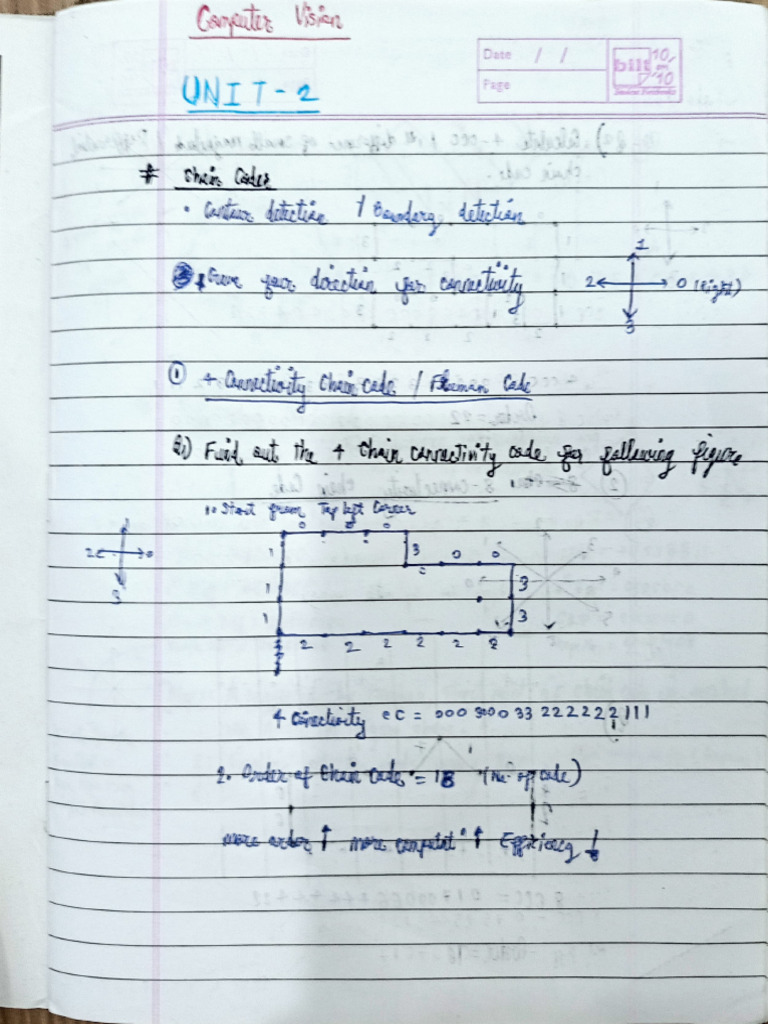 Computer Vision
Date / /
Page
bilt 10 on '10
UNIT-2
# Chain Codes
• Contour detection / Boundary detection
four direction for connectivity
1
2 0 (Right)
3
① 4 Connectivity Chain code / Freeman Code
Q1) Find out the 4 chain connectivity code for following figure
1. Start from Top left Corner
0 0 0
2 0
3
1 3 0 0
1 3
1 3
2 2 2 2 2 2
4 Conectivity CC = 000 300 33 222222111
2. Order of Chain Code = 18 (No. of code)
more order ↑ more computat° ↑ Efficiency ↓